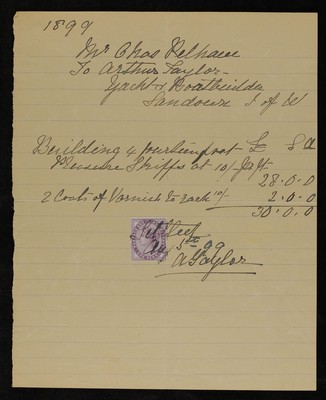 1899
Mr Chas Pelham
To Arthur Taylor
Yacht & Boatbuilder
Sandown I of W
Building 4 fourteen foot £ S d
Pleasure Skiffs at 10/- per ft
28.0.0
2 Coats of Varnish to each 10/- 2.0.0
30.0.0
5th 99
A Taylor